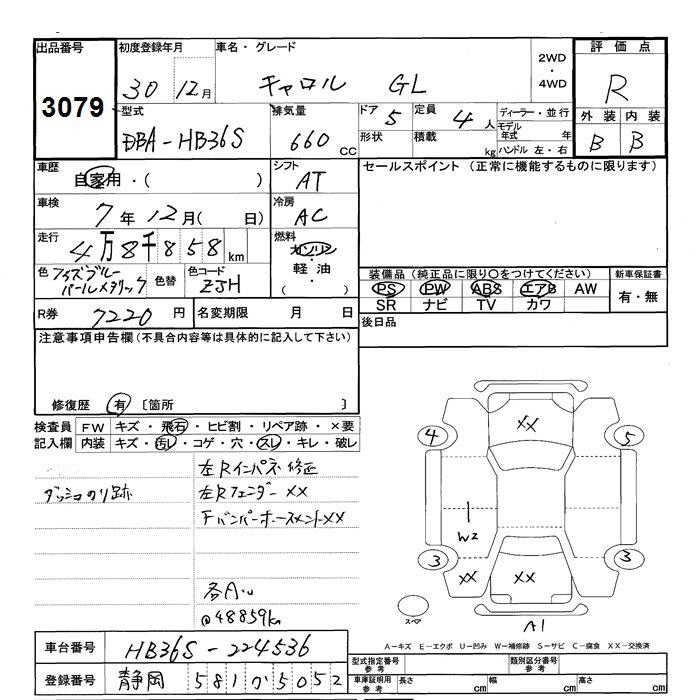 出品番号
3079
初度登録年月
30 12月
車名・グレード
キャロル GL
2WD
・
4WD
評価点
R
型式
DBA-HB36S
排気量
660 cc
ドア 5
定員 4 人
形状
積載 kg
ディーラー・並行
モデル年式 年
ハンドル 左・右
外装 内装
B B
車歴
自家用・( )
シフト
AT
セールスポイント (正常に機能するものに限ります)
車検
7年12月( 日)
冷房
AC
走行
4万8千858km
燃料
ガソリン
・
軽油
・
( )
色
色替
色コード
ZJH
装備品 (純正品に限り○をつけてください)
PS PW ABS エアB AW
SR ナビ TV カワ
新車保証書
有・無
R券 7220 円
名変期限 月 日
後日品
注意事項申告欄(不具合内容等は具体的に記入して下さい)
修復歴 有 〔箇所 〕
検査員
記入欄
FW キズ・飛石・ヒビ割・リペア跡・×要
内装 キズ・汚レ・コゲ・穴・スレ・キレ・破レ
ダッシュのり跡
左Rインパネ修正
左Rフェンダー XX
Fバンパーホースメント XX
各A.u
@48859km
XX
4
5
W2
3
3
XX
XX
スペア
A1
A-キズ E-エクボ U-凹み W-補修跡 S-サビ C-腐食 XX-交換済
車台番号 HB36S-224536
登録番号 静岡 581 か 5052
型式指定番号
参考
類別区分番号
参考
車庫証明用
参考
長さ cm
幅 cm
高さ cm